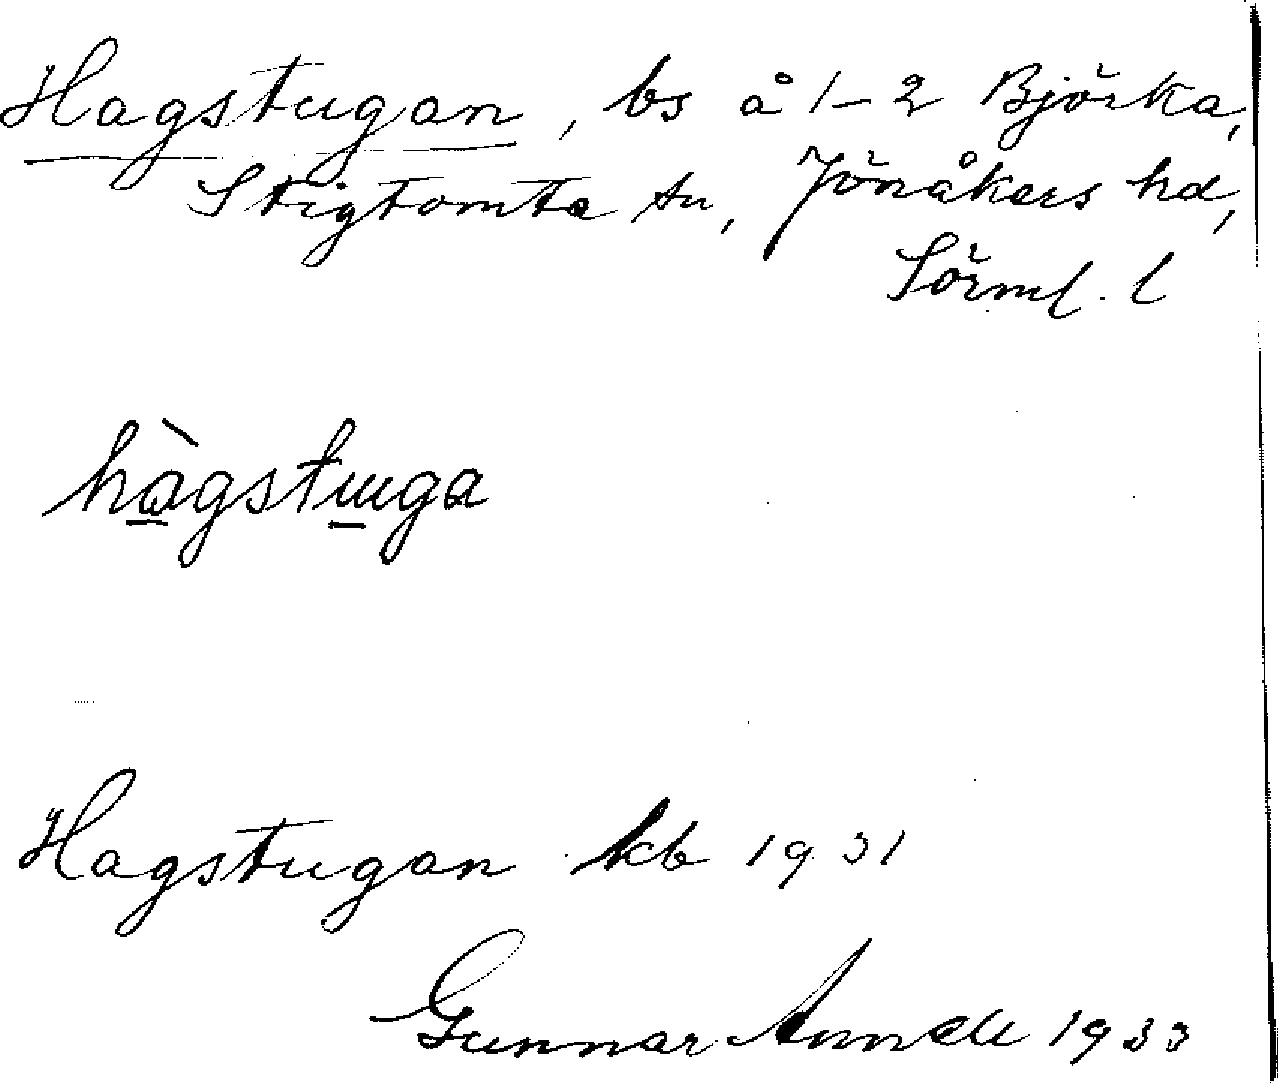 Hagstugan, bs å 1-2 Björka,
Stigtomta sn, Jönåkers hd,
Sörml. l
hàgstuga
Hagstugan kb 1931
Gunnar Anndell 1933